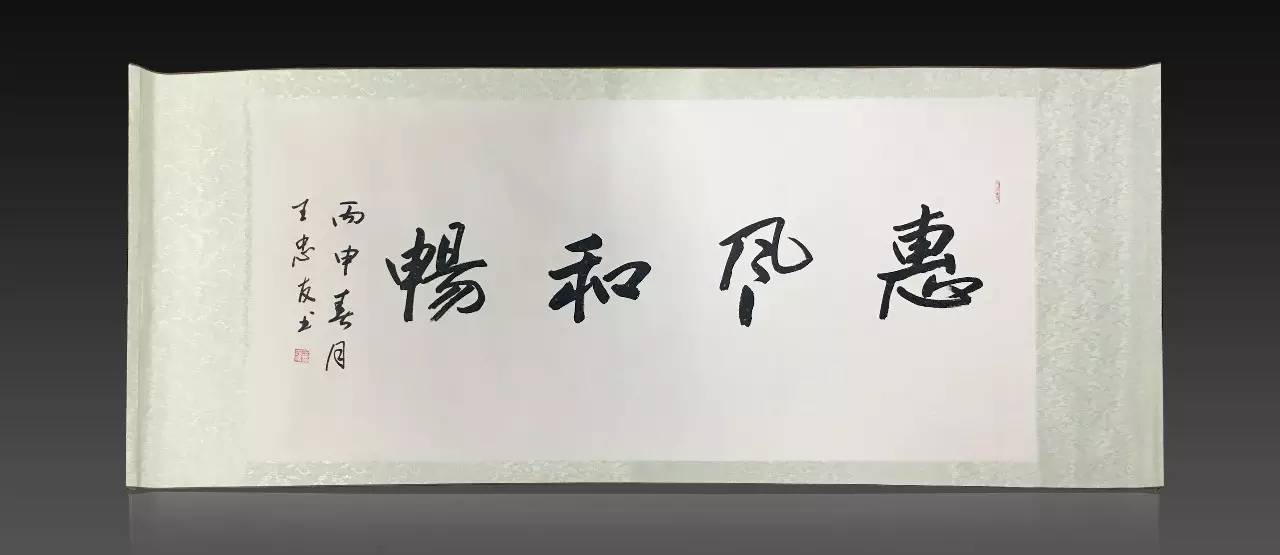 惠风和暢
丙申春月
王忠友书